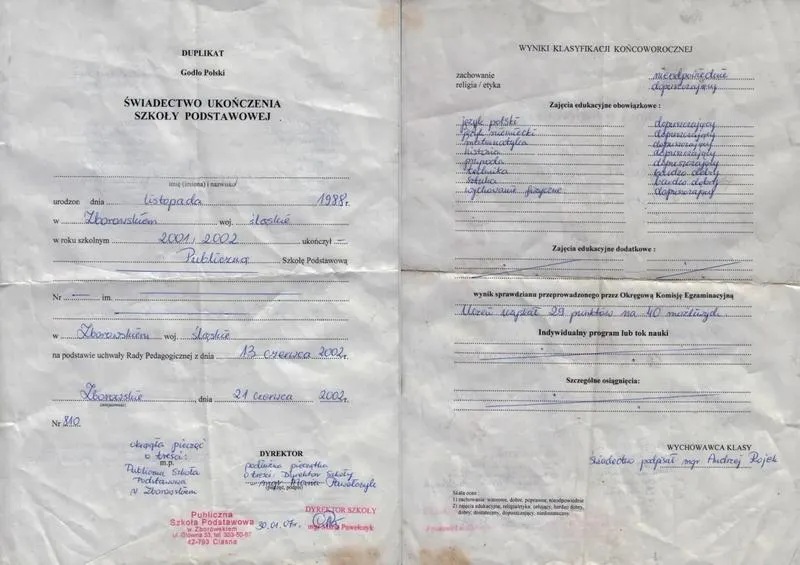 DUPLIKAT
Godło Polski
ŚWIADECTWO UKOŃCZENIA
SZKOŁY PODSTAWOWEJ
imię (imiona) i nazwisko
urodzon dnia listopada 1988 r.
w Zborowskiem woj. śląskie
w roku szkolnym 2001/2002 ukończył
Publiczną Szkołę Podstawową
Nr — im.
w Zborowskiem woj. śląskie
na podstawie uchwały Rady Pedagogicznej z dnia 13 czerwca 2002r.
Zborowskie, dnia 21 czerwca 2002r.
(miejscowość)
Nr 810
okrągła pieczęć
o treści:
m.p.
Publiczna Szkoła
Podstawowa
w Zborowskiem
DYREKTOR
podłużna pieczątka
o treści: Dyrektor Szkoły
mgr Pawełczyk
(pieczęć, podpis)
Publiczna
Szkoła Podstawowa
w Zborowskiem
ul. Główna 53, tel. 353-50-87
42-793 Ciasna
30.01.07r.
DYREKTOR SZKOŁY
mgr Pawełczyk
WYNIKI KLASYFIKACJI KOŃCOWOROCZNEJ
zachowanie nieodpowiednie
religia / etyka dopuszczający
Zajęcia edukacyjne obowiązkowe :
język polski dopuszczający
język niemiecki dopuszczający
matematyka dopuszczający
historia dopuszczający
przyroda dopuszczający
technika bardzo dobry
sztuka bardzo dobry
wychowanie fizyczne dopuszczający
Zajęcia edukacyjne dodatkowe :
wynik sprawdzianu przeprowadzonego przez Okręgową Komisję Egzaminacyjną
Uczeń uzyskał 29 punktów na 40 możliwych.
Indywidualny program lub tok nauki
Szczególne osiągnięcia:
WYCHOWAWCA KLASY
świadectwo podpisał mgr Andrzej Rojek
Skala ocen :
1) zachowanie: wzorowe, dobre, poprawne, nieodpowiednie
2) zajęcia edukacyjne, religia/etyka: celujący, bardzo dobry,
dobry, dostateczny, dopuszczający, niedostateczny